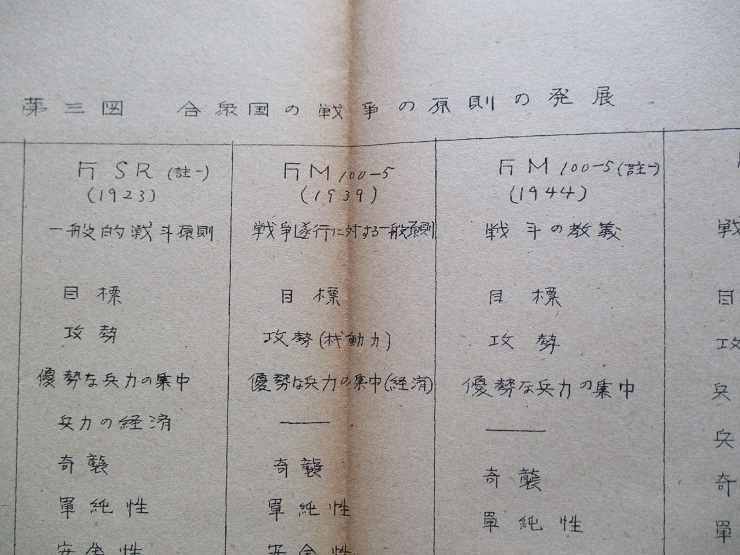 第三図 合衆国の戦争の原則の発展
FSR (註一)
(1923)
一般的戦斗原則
目標
攻勢
優勢な兵力の集中
兵力の経済
奇襲
單純性
安全性
FM 100-5
(1939)
戦争遂行に対する一般原則
目標
攻勢(材動力)
優勢な兵力の集中(経済)
——
奇襲
單純性
安全性
FM 100-5 (註一)
(1944)
戦斗の教義
目標
攻勢
優勢な兵力の集中
——
奇襲
單純性
戦
目
攻
兵
兵
奇
單